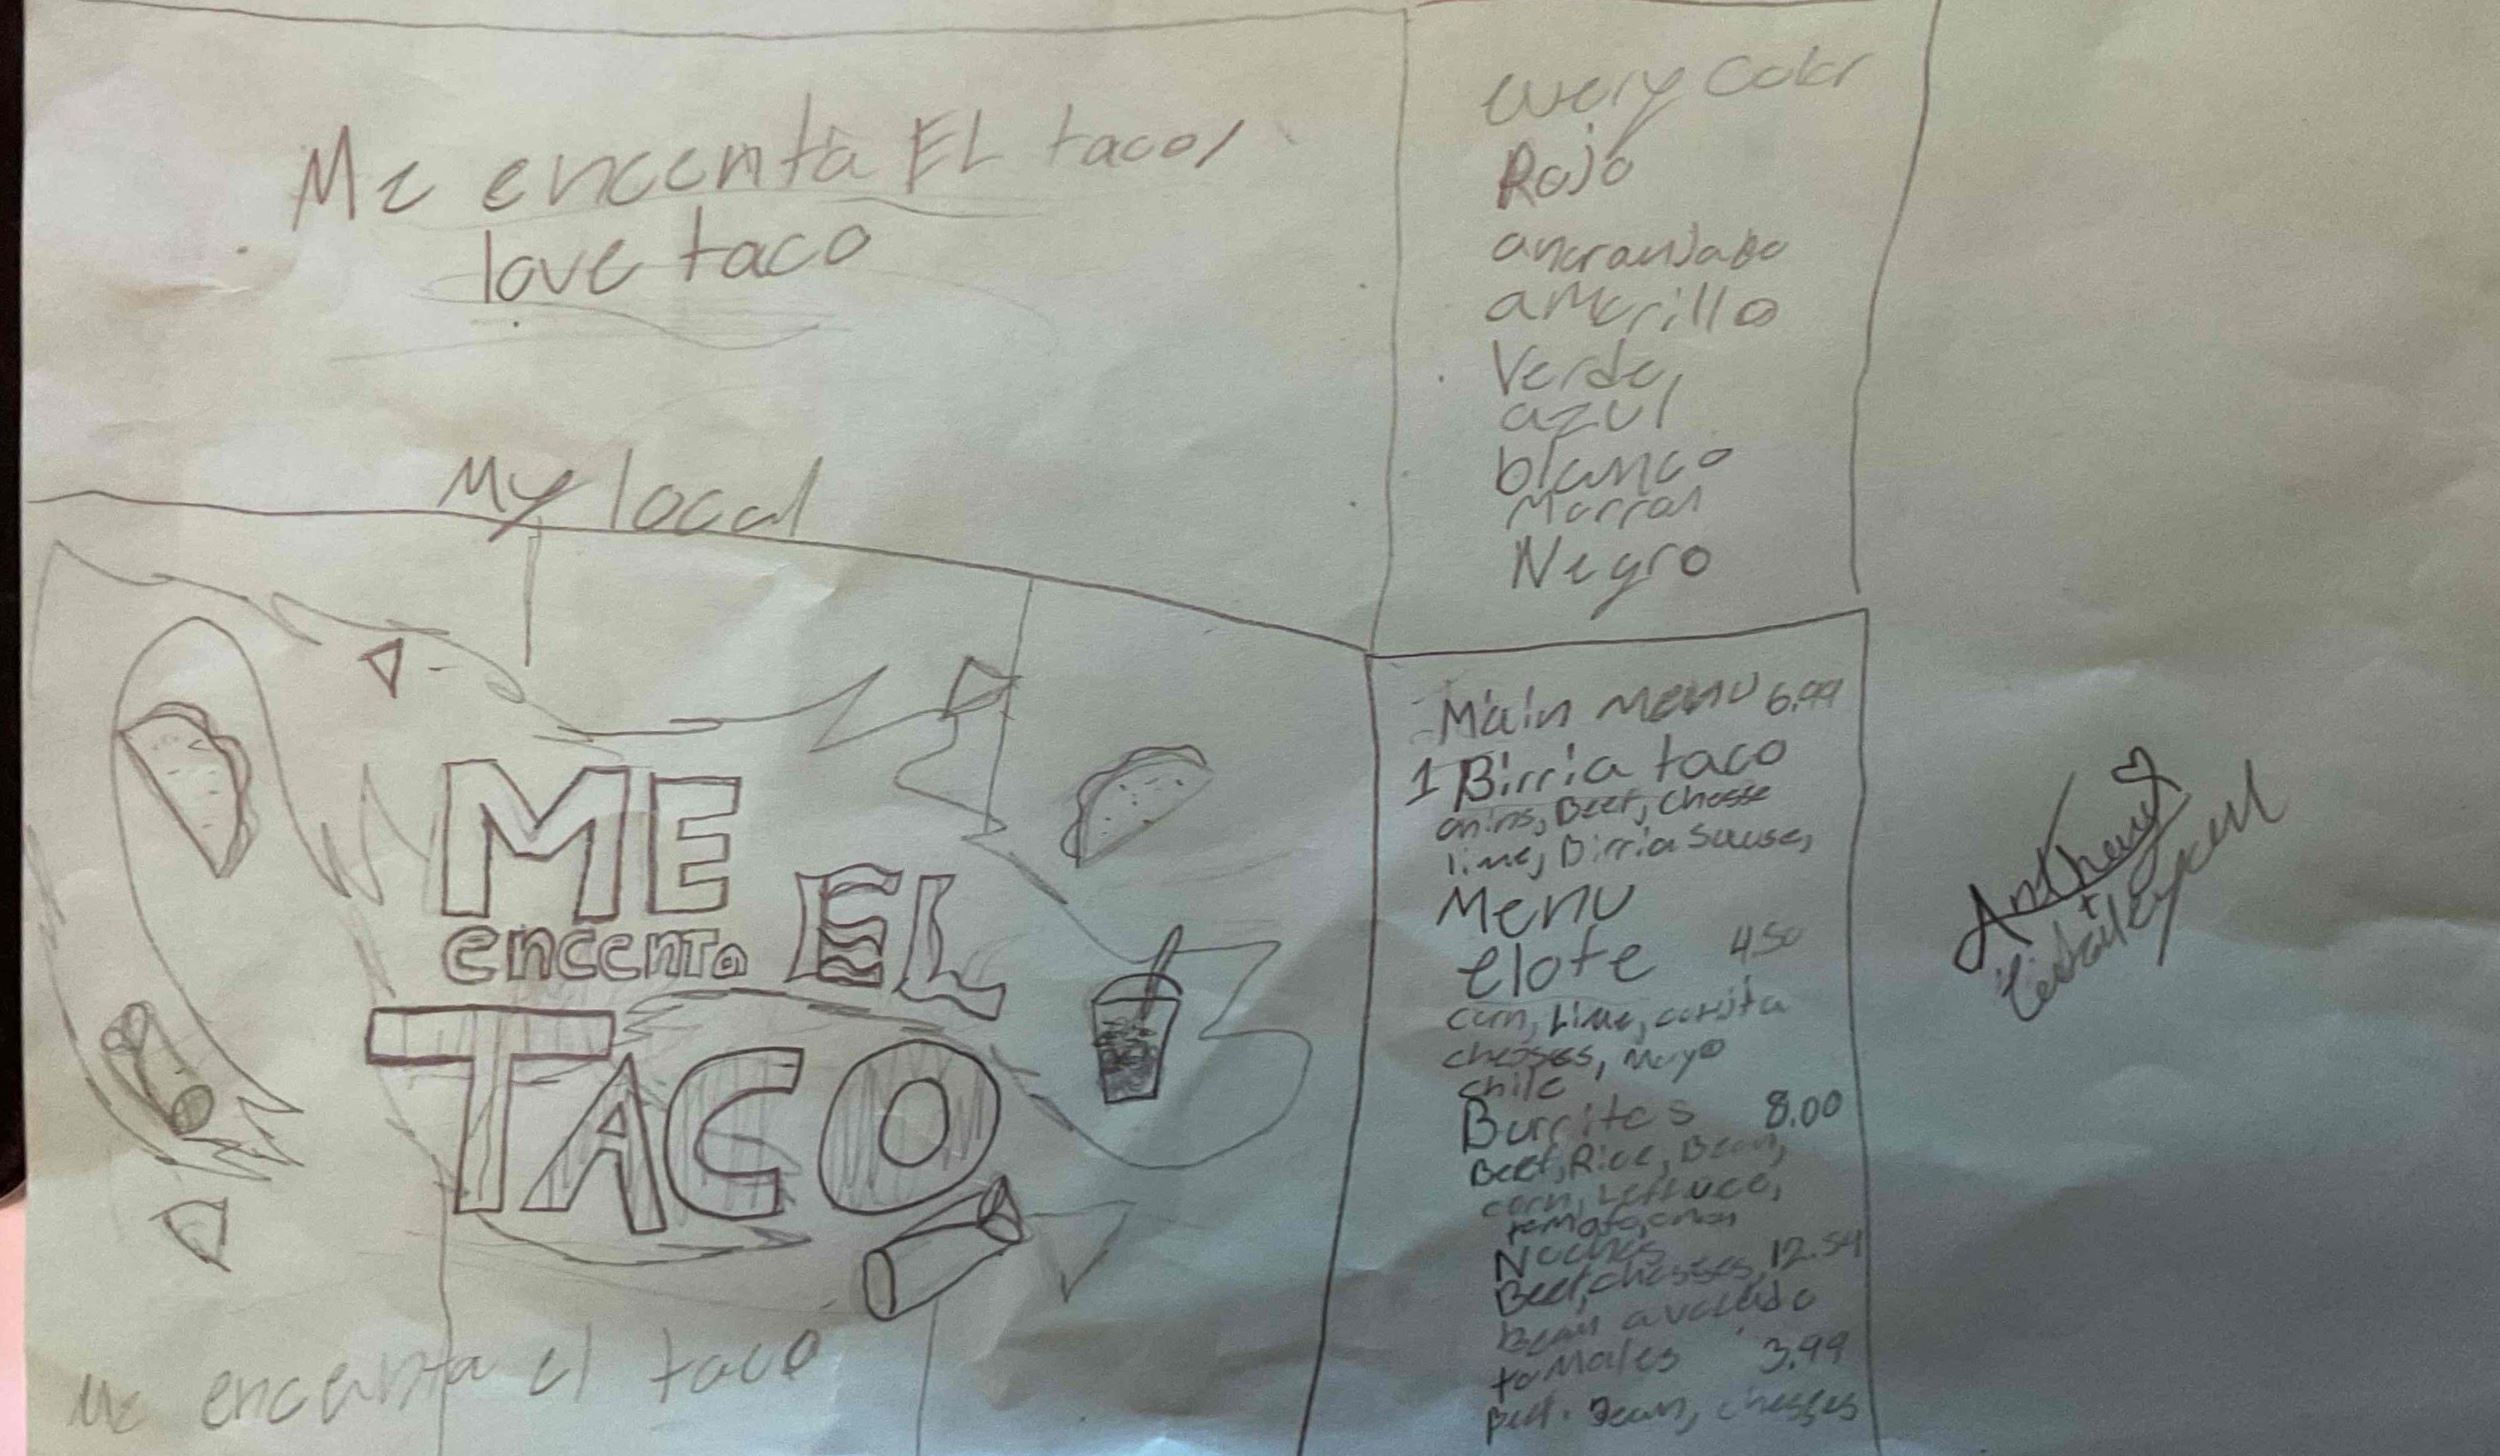 Me encenta EL tacos
love taco
My local
ME
encenta EL
TACO
Me encanta el taco
every color
Rojo
ancranjado
amerillo
Verde,
azul
blanco
Marron
Negro
Main menu 6.99
1 Birria taco
onins, Beef, Chesse
lime, Birria Sause,
Menu
elote 4.50
corn, Lime,
chesses, Mayo
chile
Burritos 8.00
Beef, Rice, Bean,
corn, Lettuce,
temato, onion
Nachos
Beef, chesses, 12.54
Bean avocado
tomales 3.99
Beef. Bean, chesses
Anthony